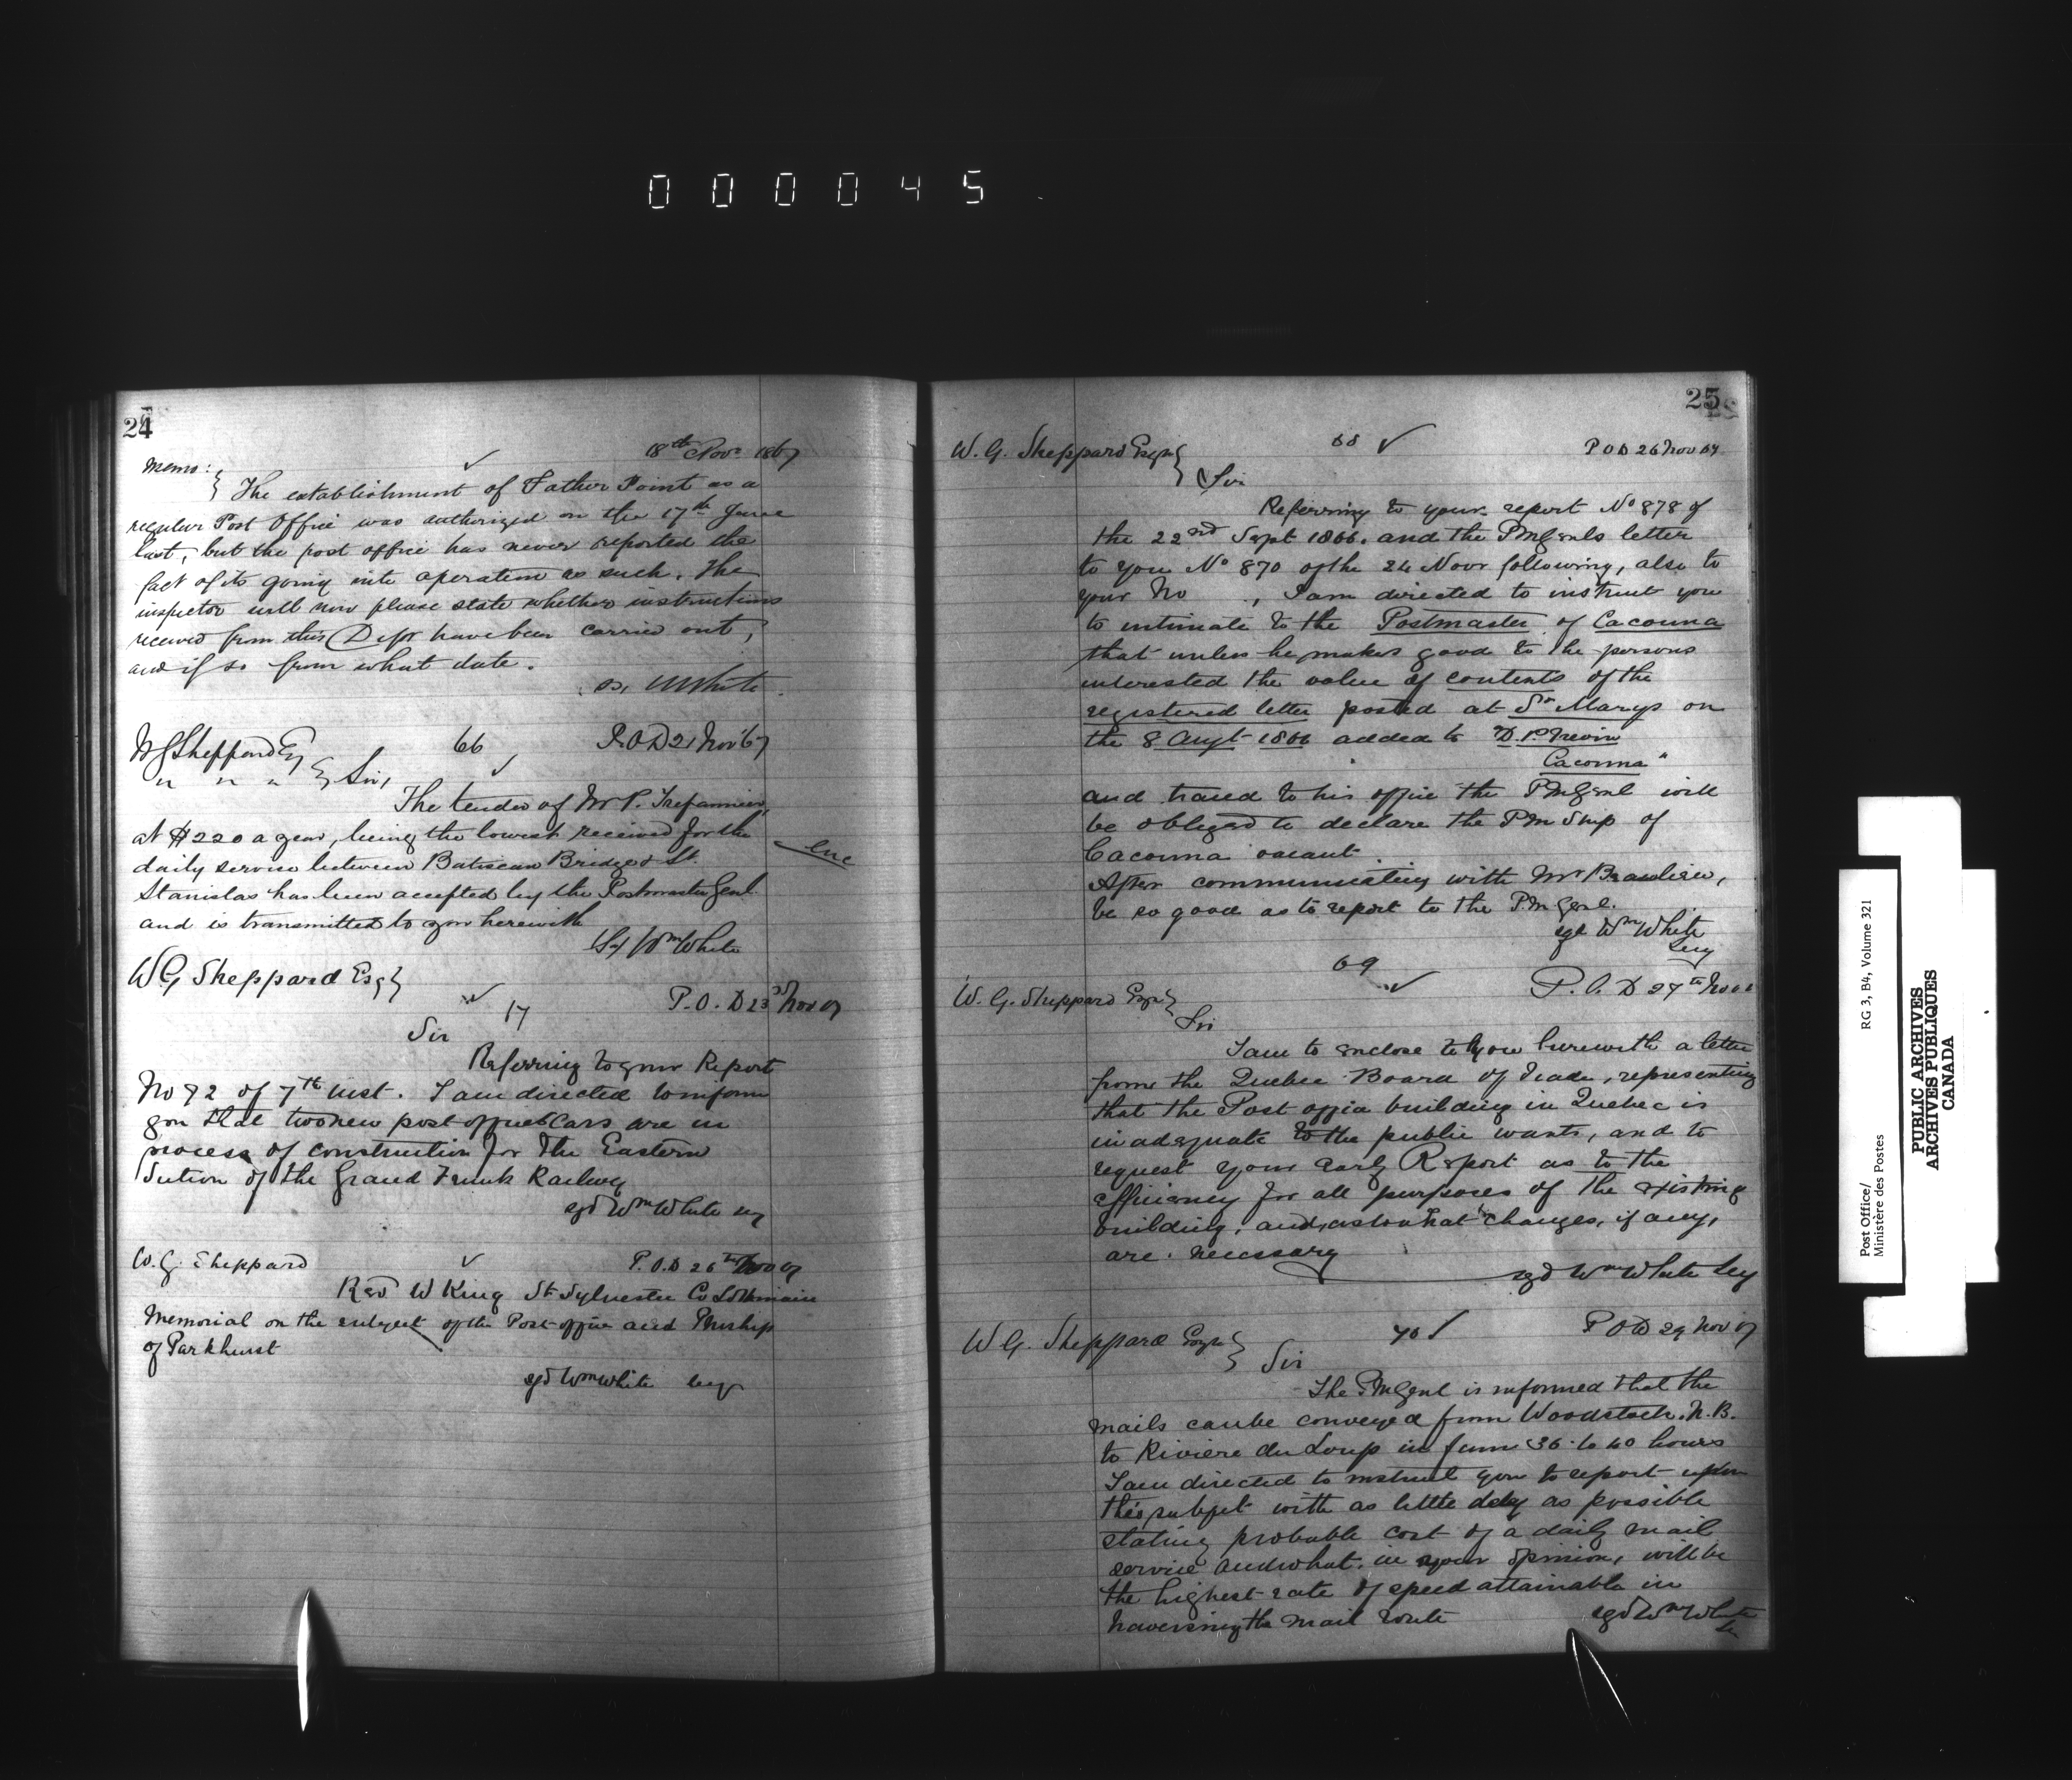 000045
24
18th Nov. 1867
Memo:
The establishment of Father Point as a
regular Post Office was authorized on the 17th June
last, but the post office has never reported the
fact of its going into operation as such. The
inspector will now please state whether instructions
received from this Dept have been carried out,
and if so from what date.
White
W G Sheppard Esq
66
P.O.D 21 Nov 67
" " " Sir,
The tender of Mr P. Trepannier,
at $220 a year, being the lowest received for the
daily service between Batiscan Bridge & St.
Stanislas has been accepted by the Postmaster Genl.
and is transmitted to you herewith
enc
Wm White
W G Sheppard Esq
17
P.O.D 23 Nov 67
Sir
Referring to your Report
No 72 of 7th inst. I am directed to inform
you that two new post office Cars are in
process of construction for the Eastern
Section of the Grand Trunk Railway
sgd Wm White secy
W. G. Sheppard
P.O.D 26th Nov 67
Revd W King St Sylvester Co
Memorial on the subject of the Post office and Pmship
of Parkhurst
sgd Wm White secy
25
W. G. Sheppard Esqr
68
P O D 26 Nov 67
Sir
Referring to your report No 878 of
the 22nd Sept 1866. and the PMGenls letter
to you No 870 of the 24 Novr following, also to
your No , I am directed to instruct you
to intimate to the Postmaster of Cacouna
that unless he makes good to the persons
interested the value of contents of the
registered letter posted at St Marys on
the 8 Augt 1866 added to "D. P.
Cacouna"
and traced to his office the PMGenl will
be obliged to declare the PM Ship of
Cacouna vacant.
After communicating with Mr Beaulieu,
be so good as to report to the P.M Genl.
sgd Wm White
Secy
69
W. G. Sheppard Esqr
P.O.D 27th Nov
Sir
I am to enclose to you herewith a letter
from the Quebec Board of Trade, representing
that the Post office building in Quebec is
inadequate to the public wants, and to
request your early Report as to the
efficiency for all purposes of the existing
building, and, as to what changes, if any,
are necessary
sgd Wm White Secy
W G. Sheppard Esqr
70
P O D 29 Nov 67
Sir
The PMGenl is informed that the
mails can be conveyed from Woodstock. N.B.
to Riviere du Loup in from 36 to 40 hours
I am directed to instruct you to report upon
this subject with as little delay as possible
stating probable cost of a daily mail
service and what, in your opinion, will be
the highest rate of speed attainable in
traversing the mail route
sgd Wm White
PUBLIC ARCHIVES
ARCHIVES PUBLIQUES
CANADA
Post Office/
Ministère des Postes
RG 3, B4, Volume 321